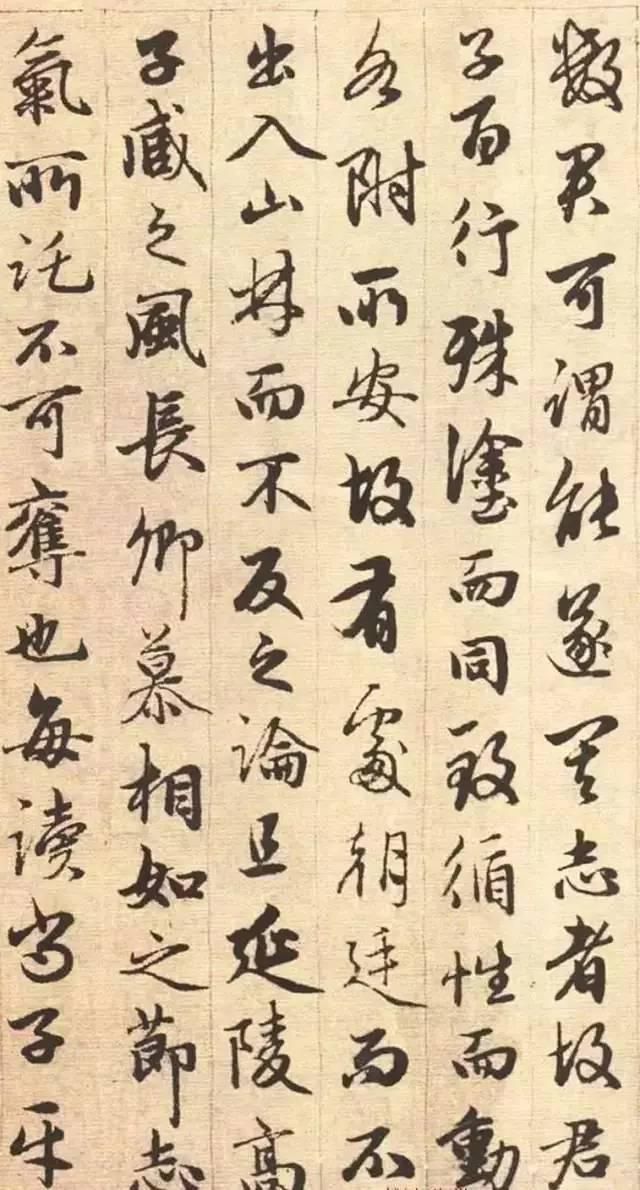 数君可谓能遂其志者故君
子百行殊塗而同致循性而動
各附所安故有處朝廷而不
出入山林而不反之論且延陵高
子臧之風長卿慕相如之節志
氣所託不可奪也每讀尚子平